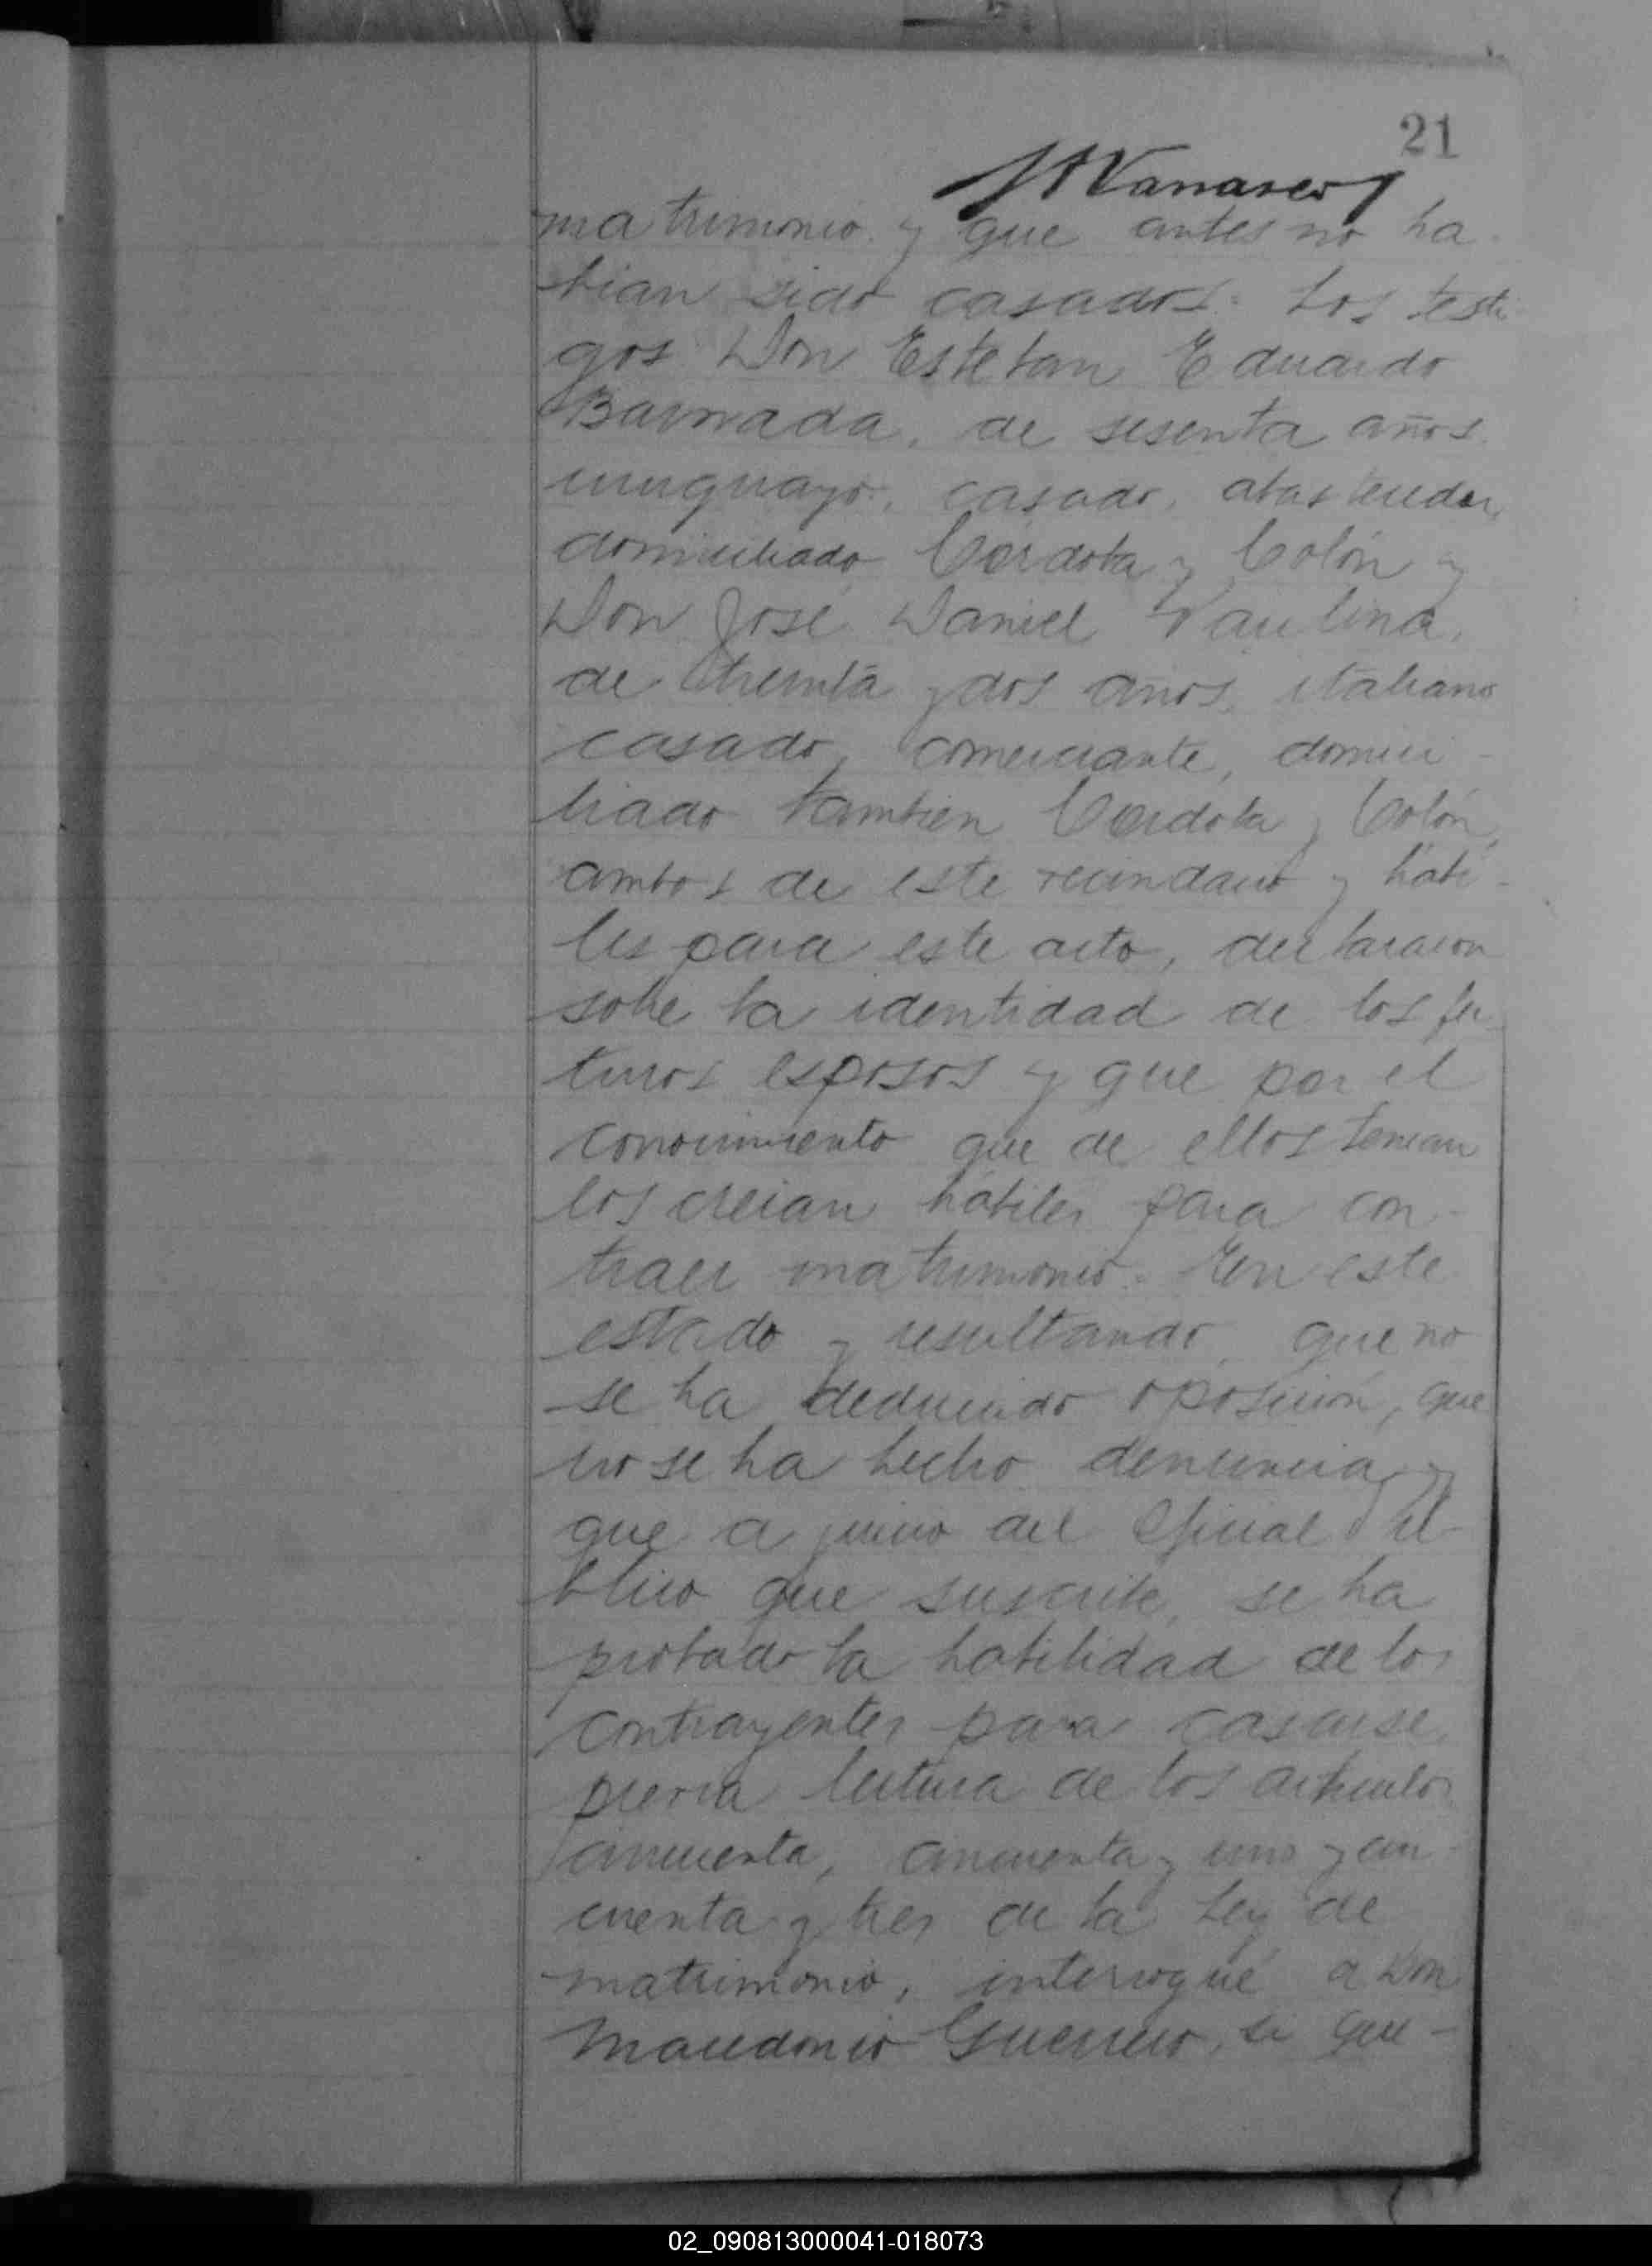 21
matrimonio y que antes no ha-
bian sido casados. Los testi-
gos Don Esteban Eduardo
Barnada, de sesenta años
uruguayo, casado, abastecedor,
domiciliado Córdoba y Colón y
Don José Daniel Paulina,
de treinta y dos años, italiano
casado, comerciante, domici-
liado tambien Córdoba y Colón,
ambos de este vecindario y habi-
les para este acto, declararon
sobre la identidad de los fu-
turos esposos y que por el
conocimiento que de ellos tenian
los creian habiles para con-
traer matrimonio. En este
estado y resultando que no
se ha deducido oposición, que
no se ha hecho denuncia y
que a juicio del Oficial Pú-
blico que suscribe, se ha
probado la habilidad de los
contrayentes para casarse,
previa lectura de los articulos
cincuenta, cincuenta y uno y cin-
cuenta y tres de la Ley de
matrimonio, interrogué a Don
Macedonio Guerrero, si que-
02_090813000041-018073